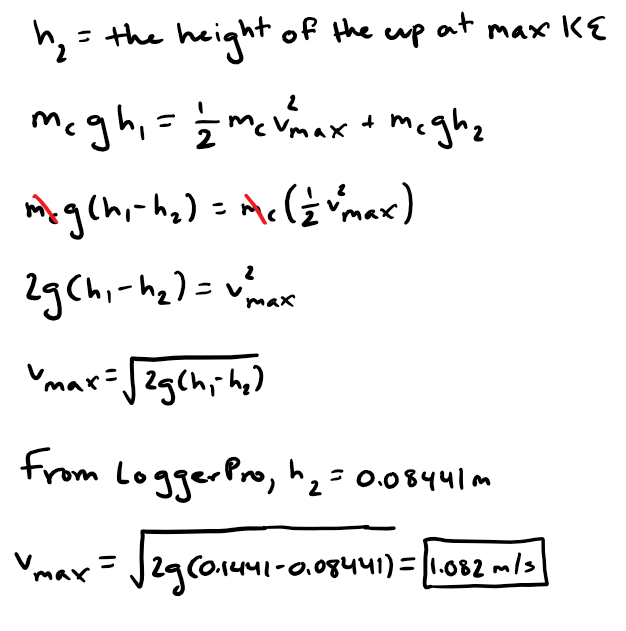 h₂ = the height of the cup at max KE
m_c g h₁ = 1/2 m_c v²_max + m_c g h₂
m_c g (h₁ - h₂) = m_c (1/2 v²_max)
2g(h₁ - h₂) = v²_max
v_max = √(2g(h₁ - h₂))
From LoggerPro, h₂ = 0.08441 m
v_max = √(2g(0.1441 - 0.08441)) = 1.082 m/s